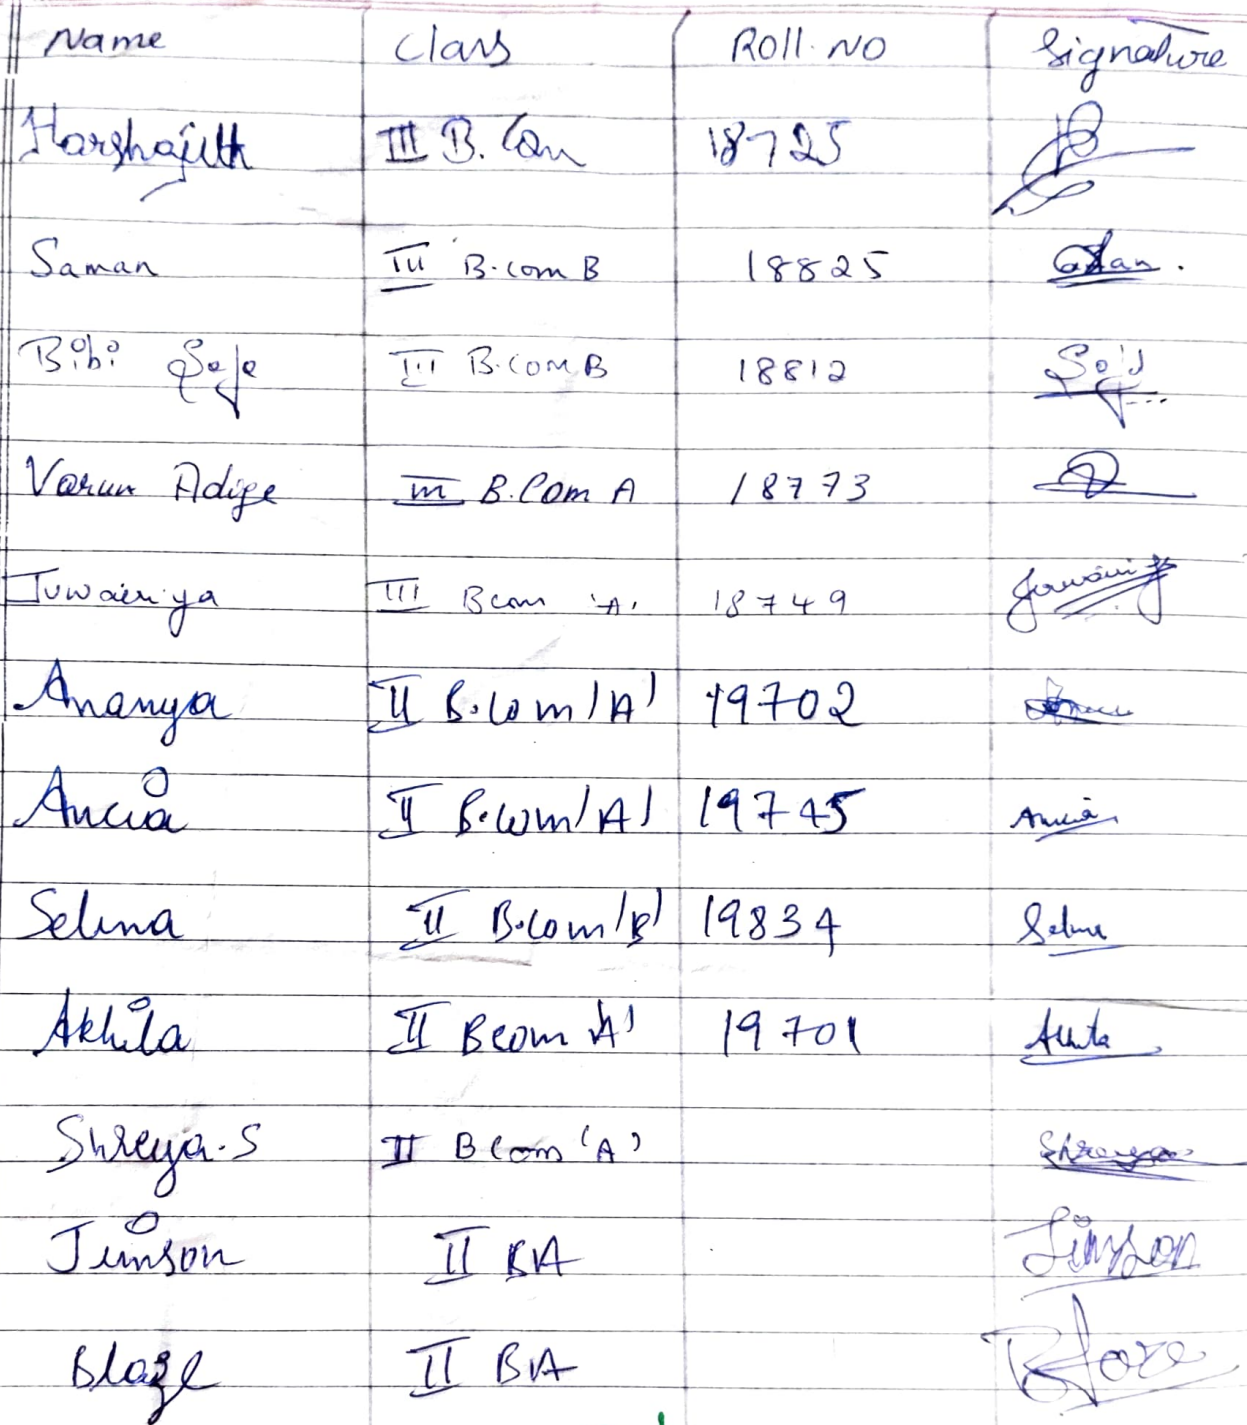 Name Class Roll. NO Signature
Harshajith III B. Com 18725
Saman III B.com B 18825
Bibi III B.com B 18812
Varun Adige III B.Com A 18773
Juwairiya III Bcom 'A' 18749
Ananya II B.com 'A' 19702
Ancia II B.com 'A' 19745 Ancia
Selina II B.com 'B' 19834 Selina
Akhila II Bcom 'A' 19701
Shreya.S II Bcom 'A' Shreya
Jimson II BA Jimson
Blaze II BA